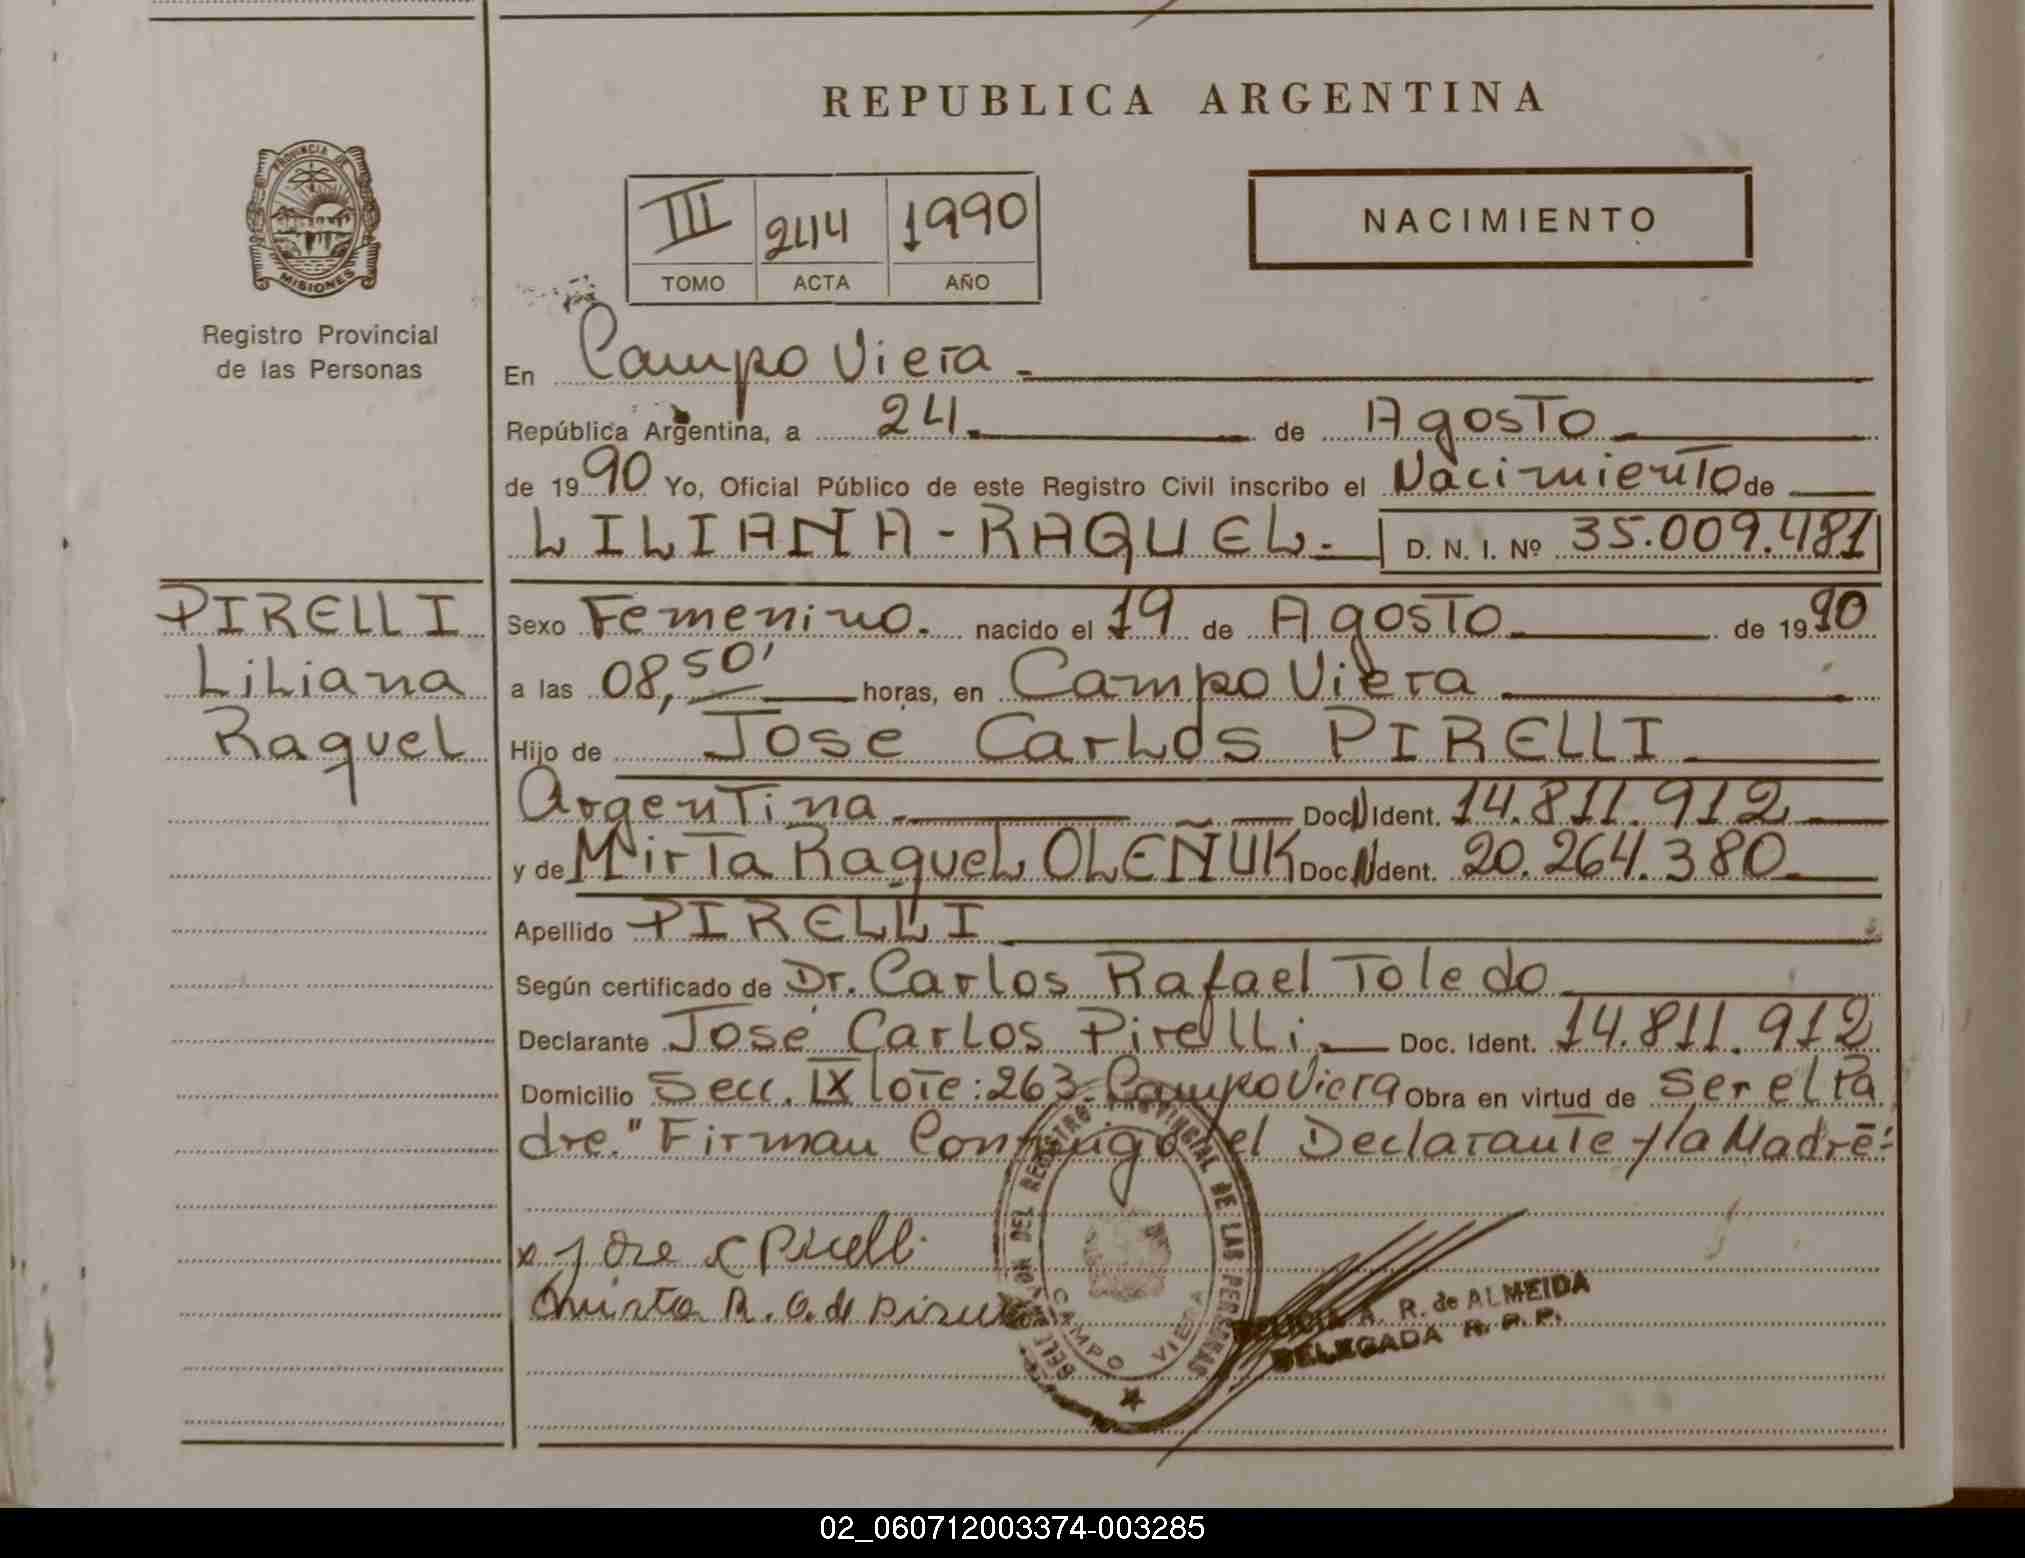 REPUBLICA ARGENTINA
PROVINCIA DE
MISIONES
Registro Provincial
de las Personas
III 244 1990
TOMO ACTA AÑO
NACIMIENTO
En Campo Viera
República Argentina, a 24 de Agosto
de 1990 Yo, Oficial Público de este Registro Civil inscribo el Nacimiento de
LILIANA - RAQUEL.- D. N. I. Nº 35.009.481
PIRELLI
Liliana
Raquel
Sexo Femenino. nacido el 19 de Agosto de 1990
a las 08,50' horas, en Campo Viera
Hijo de José Carlos PIRELLI
Argentina Doc. N. Ident. 14.811.912
y de Mirta Raquel OLEÑUK Doc. N. Ident. 20.264.380
Apellido PIRELLI
Según certificado de Dr. Carlos Rafael Toledo
Declarante José Carlos Pirelli Doc. Ident. 14.811.912
Domicilio Secc. IX lote: 263- Campo Viera Obra en virtud de ser el Pa
dre." Firman Conmigo el Declarante y la Madre"
Jose C Pirelli
Mirta R. O. de Pirelli
DELEGACION DEL REGISTRO PROVINCIAL DE LAS PERSONAS
CAMPO VIERA
R. de ALMEIDA
DELEGADA R. P. P.
02_060712003374-003285